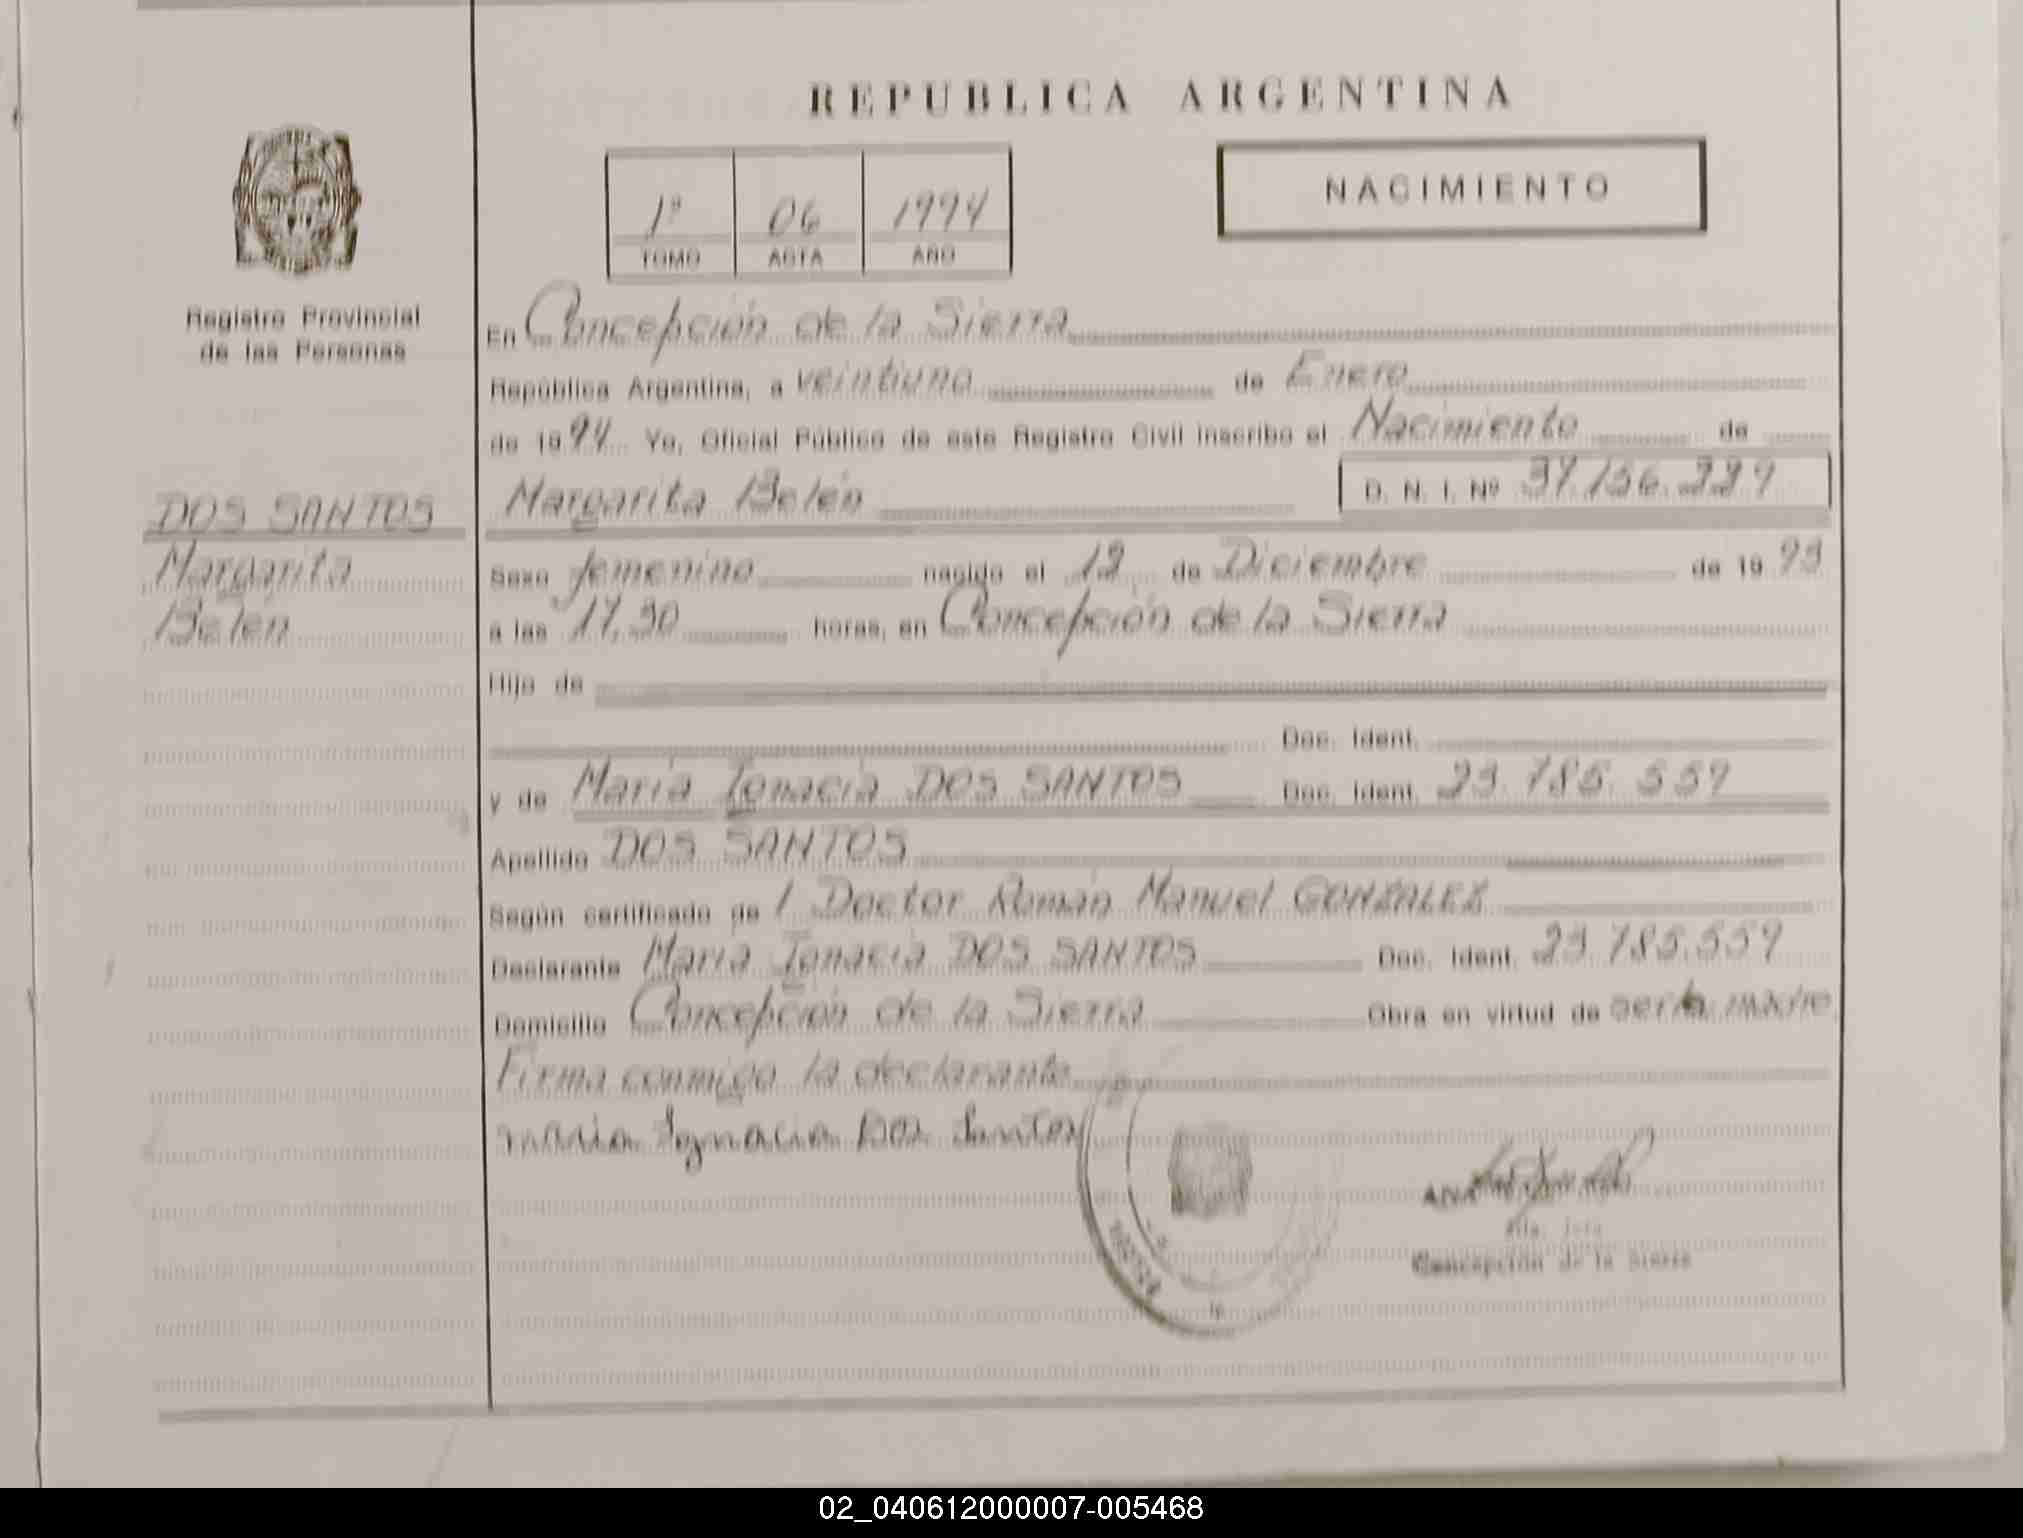 REPUBLICA ARGENTINA
NACIMIENTO
1º 06 1994
TOMO ACTA AÑO
Registro Provincial
de las Personas
En Concepción de la Sierra
República Argentina, a veintiuno de Enero
de 1994 Yo, Oficial Público de este Registro Civil inscribo el Nacimiento de
Margarita Belén D. N. I. Nº
DOS SANTOS
Margarita
Belén
Sexo femenino nacido el 12 de Diciembre de 1993
a las 17,30 horas, en Concepción de la Sierra
Hijo de
Doc. Ident.
y de María Ignacia DOS SANTOS Doc. Ident. 23.785.559
Apellido DOS SANTOS
Según certificado de l Doctor Román Manuel GONZALEZ
Declarante María Ignacia DOS SANTOS Doc. Ident. 23.785.559
Domicilio Concepción de la Sierra Obra en virtud de ser la madre
Firma conmigo la declarante
Maria Ignacia Dos Santos
ANA
Concepción de la Sierra
02_040612000007-005468